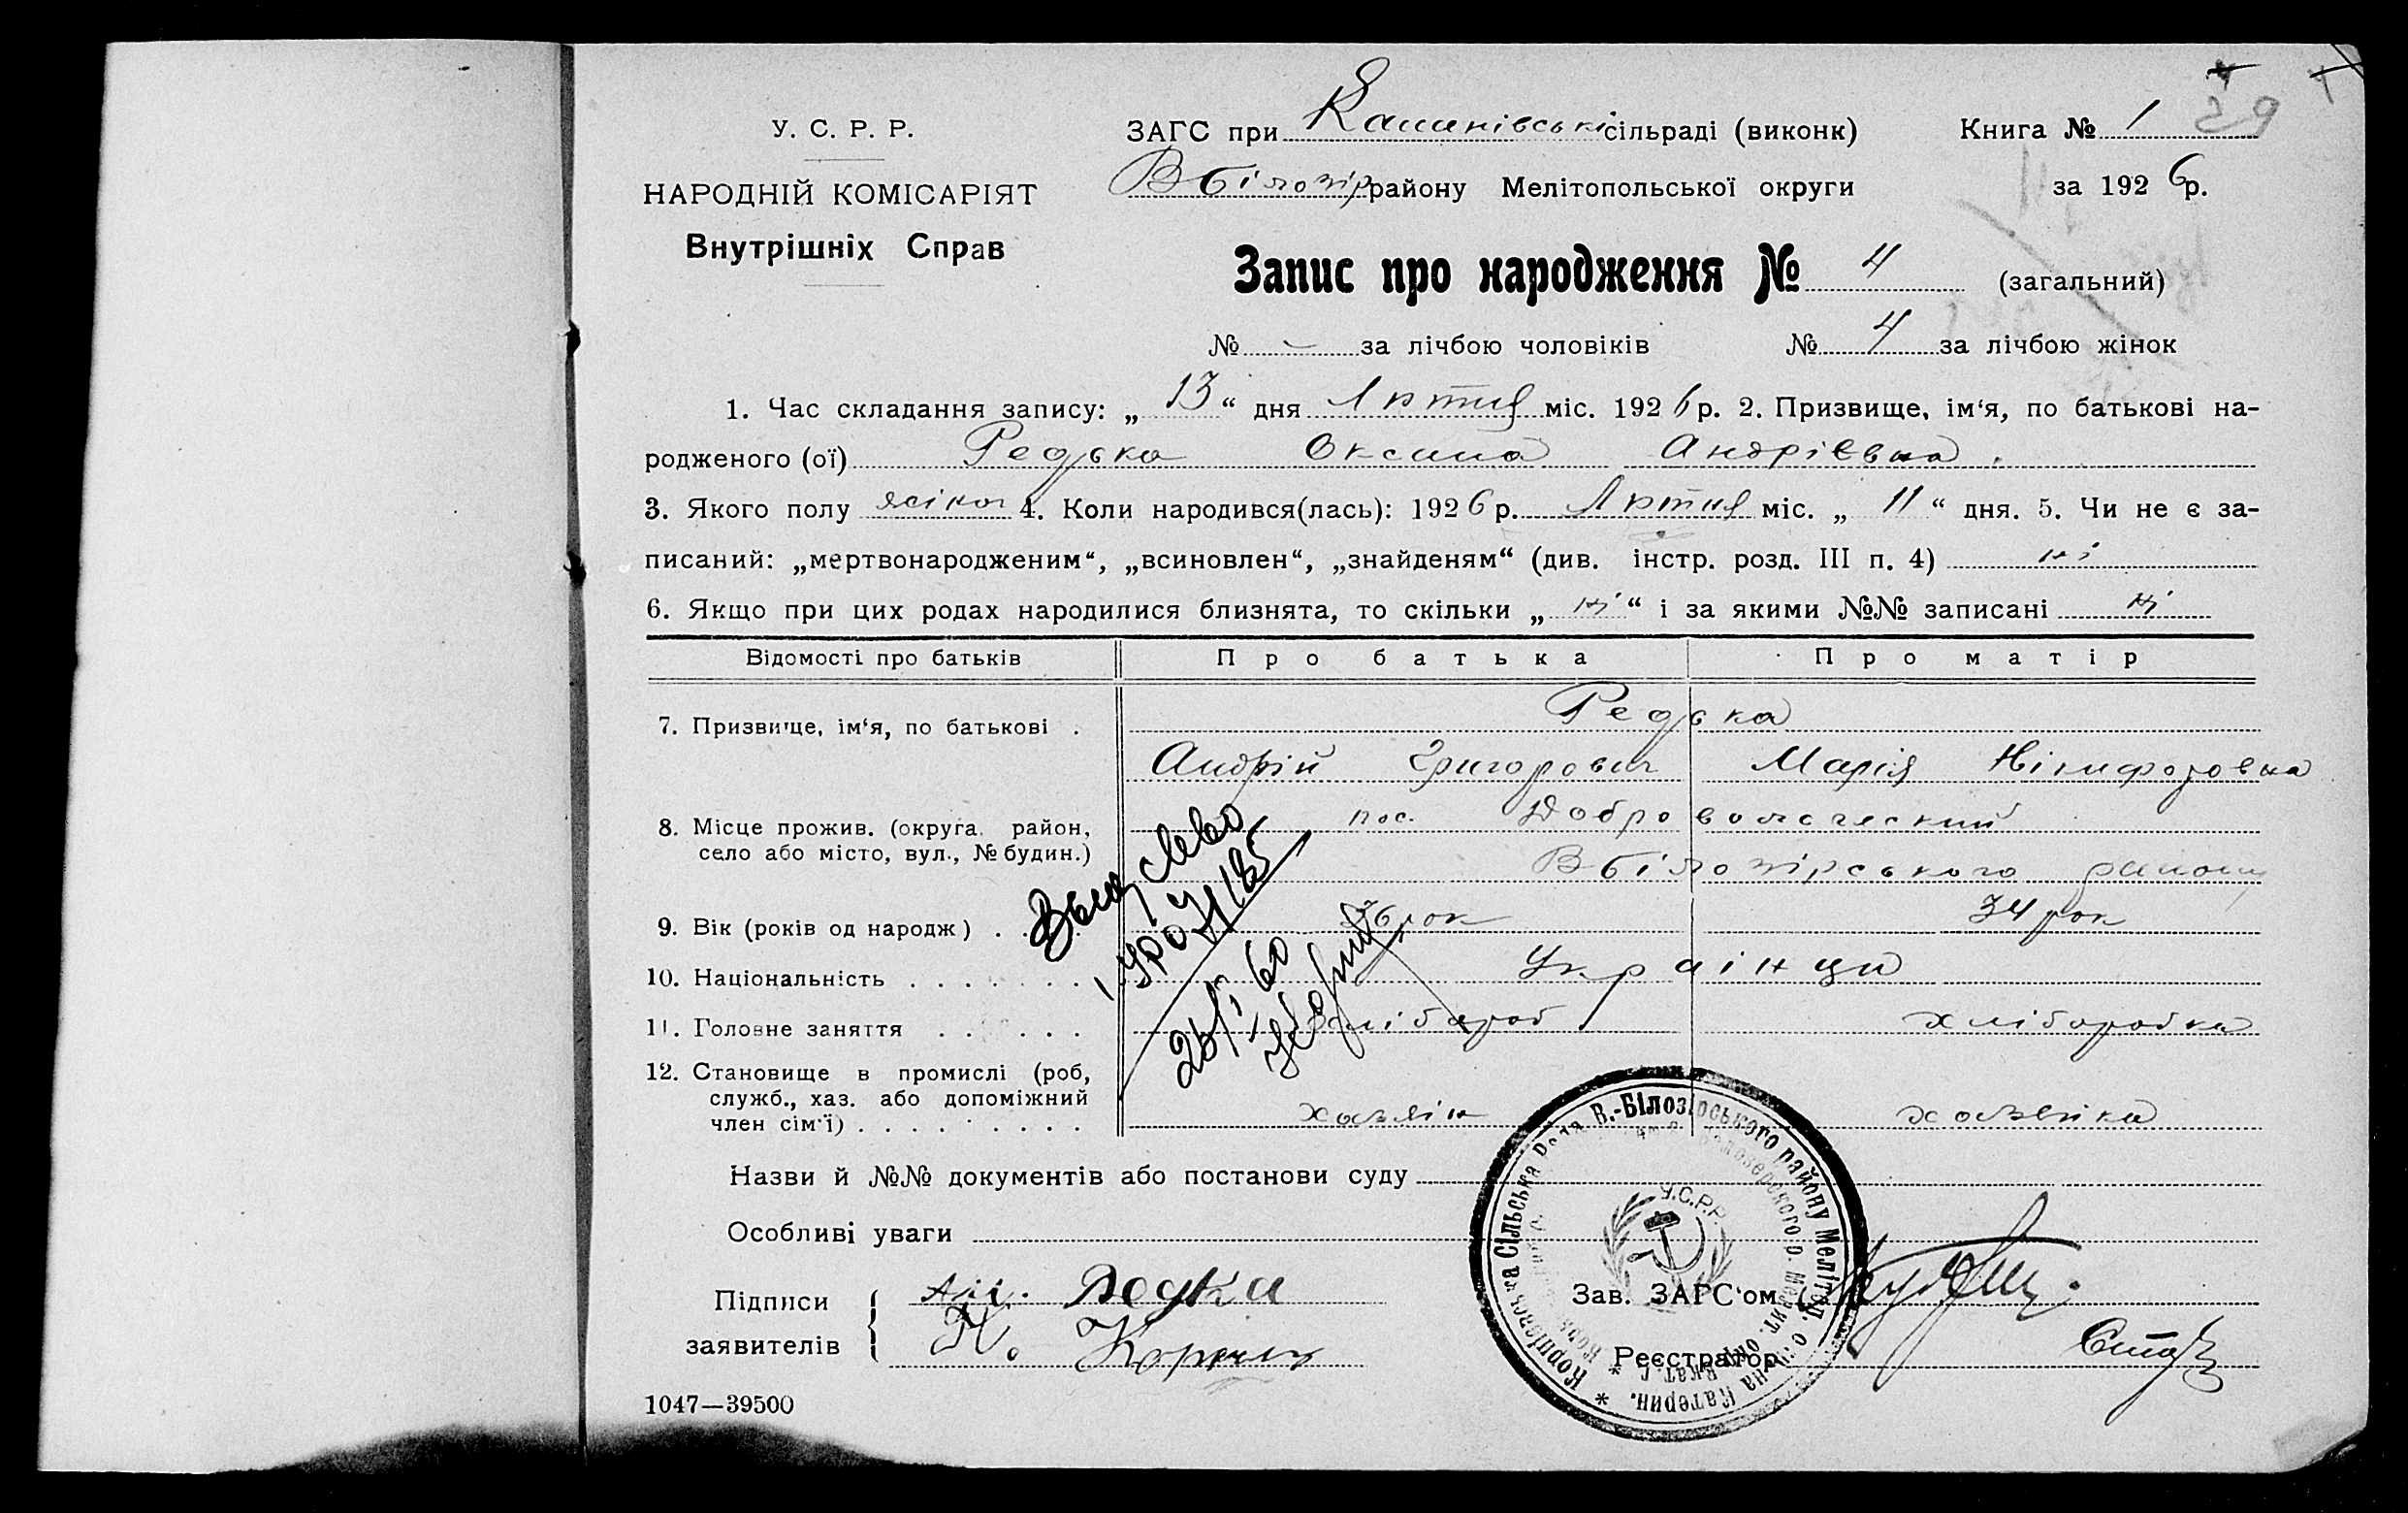 У. С. Р. Р.
НАРОДНІЙ КОМІСАРІЯТ
Внутрішніх Справ
ЗАГС при сільраді (виконк)
Книга № 1 29
В Білозір району Мелітопольської округи
за 1926 р.
Запис про народження № 4 (загальний)
№ - за лічбою чоловіків № 4 за лічбою жінок
1. Час складання запису: „ 13 “ дня Лютня міс. 1926 р. 2. Призвище, ім‘я, по батькові на-
родженого (ої) Редька Оксана Андріевна.
3. Якого полу жіноч 4. Коли народився(лась): 1926 р. Лютня міс. „ 11 “ дня. 5. Чи не є за-
писаний: „мертвонародженим“, „всиновлен“, „знайденям“ (див. інстр. розд. III п. 4) ні
6. Якщо при цих родах народилися близнята, то скільки „ ні “ і за якими №№ записані ні
Відомості про батьків Про батька Про матір
7. Призвище, ім‘я, по батькові . Редька
Андрій Григорович Марія Нікифоровна
8. Місце прожив. (округа, район, пос. Добровольческий
село або місто, вул., № будин.) В Білозірського району
9. Вік (років од народж) . . . 36 рок 34 рок
10. Національність . . . . . . . Українци
11. Головне заняття . . . . . . хлібороб хліборобка
12. Становище в промислі (роб,
служб., хаз. або допоміжний
член сім‘ї) . . . . . . . . . хозяін хозяйка
Назви й №№ документів або постанови суду
Особливі уваги
Підписи Редька
заявителів К.
Зав. ЗАГС‘ом
Реєстратор
У.С.Р.Р.
Сільська Рада В.-Білозірського району Мелітоп. Катерин.
1047—39500